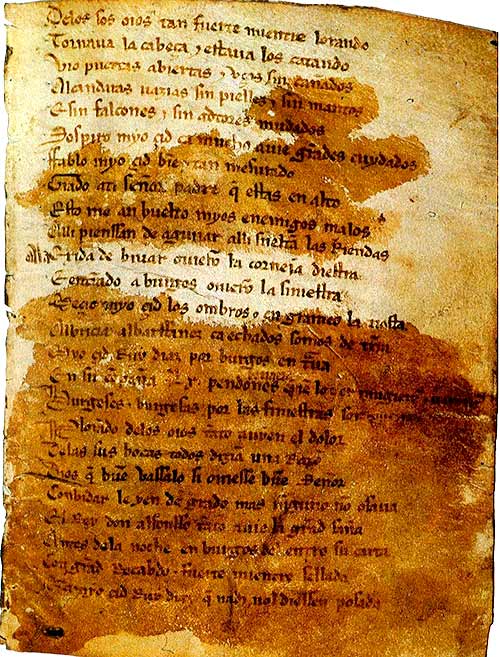 Delos sos oios tan fuerte mientre lorando
Tornaua la cabeça ⁊ estaua los catando
Vio puertas abiertas ⁊ vços sin cañados
Alcandaras uazias sin pielles ⁊ sin mantos
E sin falcones ⁊ sin adtores mudados
Sospiro myo çid ca mucho auie grãdes cuydados
Fablo myo çid bien ⁊ tan mesurado
Grado ati señor padre q̃ estas en alto
Esto me an buelto myos enemigos malos
Alli pienssan de aguiiar alli sueltã las Riendas
Ala exida de biuar ouierõ la corneia diestra
E entrando a burgos ouierõ la siniestra
Meçio myo çid los ombros ⁊ en grameo la tiesta
Albricia albarffanez ca echados somos de trãa
Myo çid Ruy diaz por burgos en traua
En su cõpaña .Lx. pendones
Burgeses ⁊ burgesas por las finiestras son
Plorando delos oios tãto auyen el dolor
Delas sus bocas todos dizian una Razõ
Dios q̃ buẽ vassalo si ouiesse buẽ Señor
Conbidar le yen de grado mas ninguno no osaua
El Rey don alfonsso tãto auie la grãd saña
Antes dela noche en burgos del entro su carta
Con grãd Recabdo ⁊ fuerte mientre sellada
Que a myo çid Ruy diaz q̃ nadi nol diessen posada